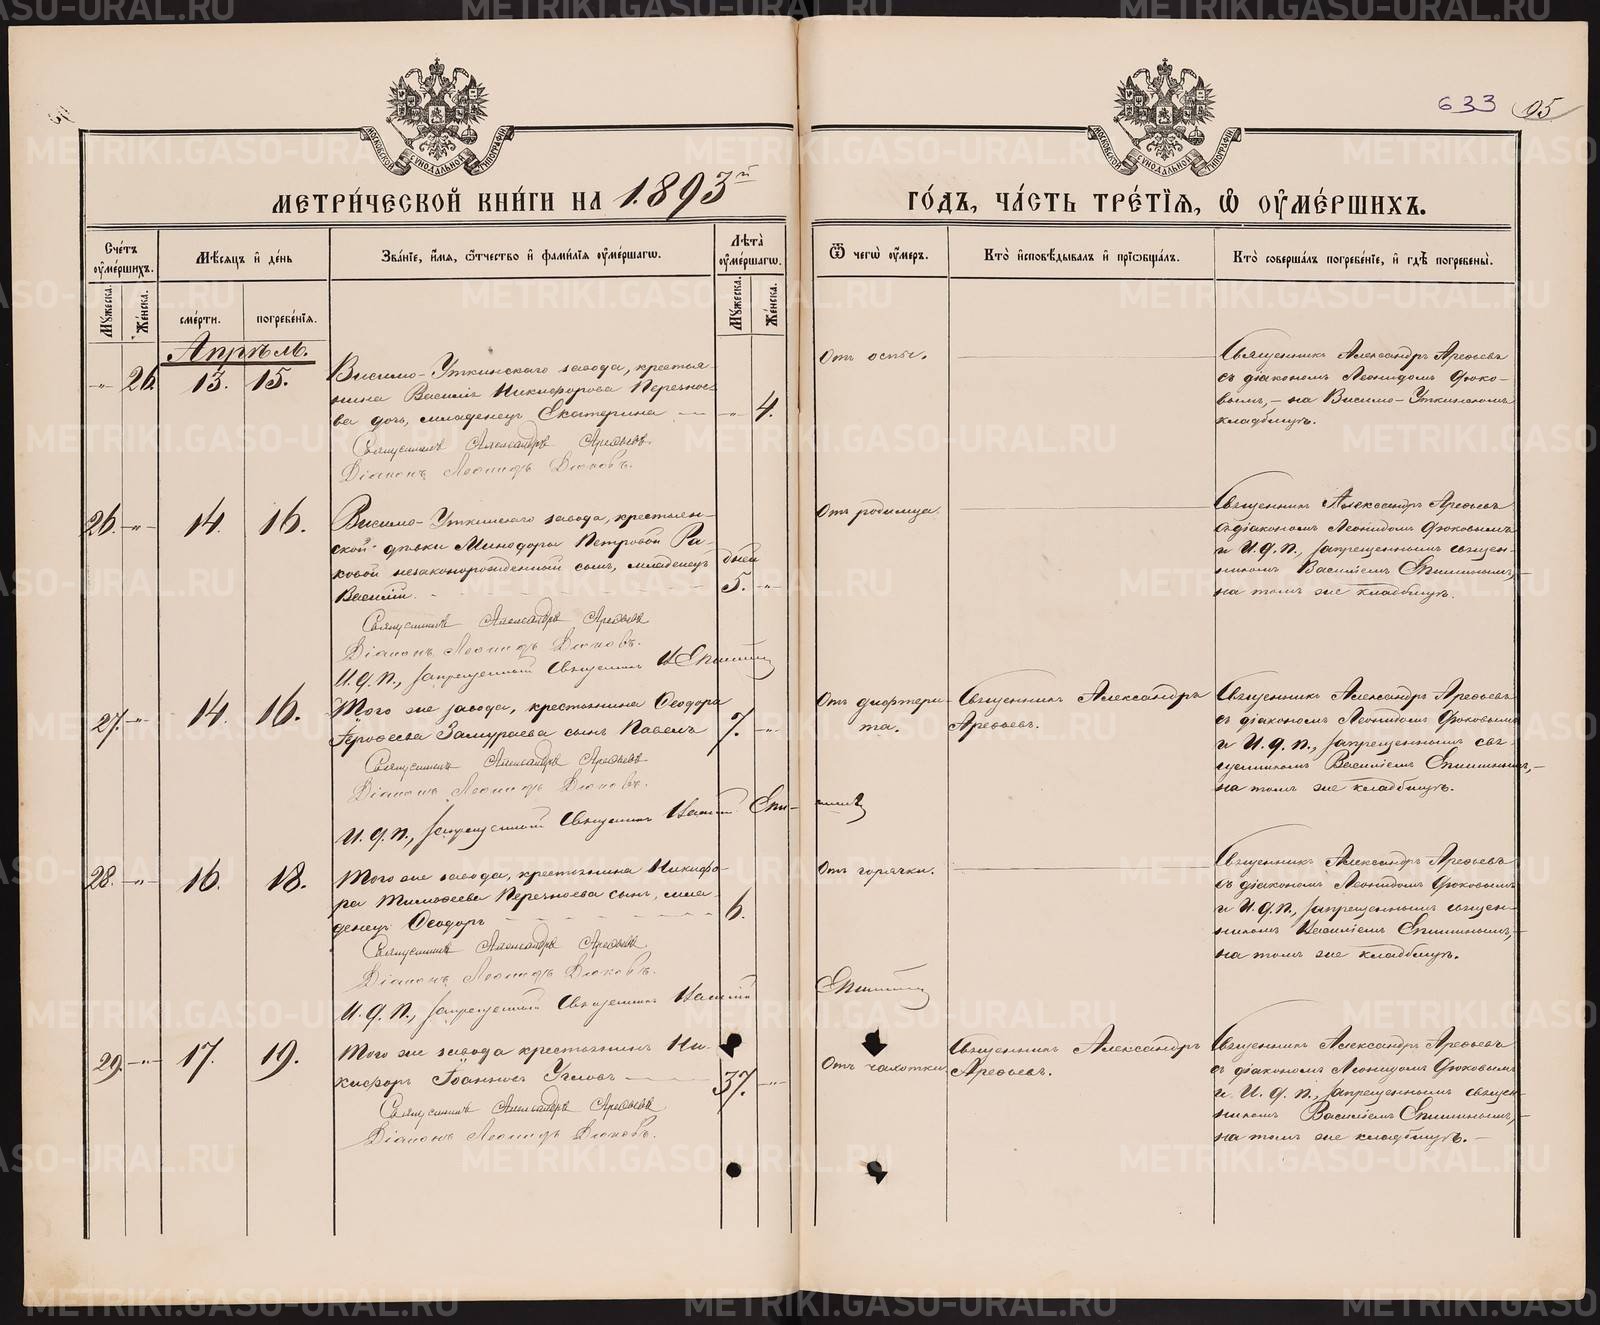 633 95
МОСКОВСКОЙ СѴНОДАЛЬНОЙ ТИПОГРАФІИ
МОСКОВСКОЙ СѴНОДАЛЬНОЙ ТИПОГРАФІИ
МЕТРИ́ЧЕСКОЙ КНИ́ГИ НА 1893й
ГО́ДЪ, ЧА́СТЬ ТРЕ́ТІѦ, Ѡ҆ ОУ҆МЕ́РШИХЪ.
Сче́тъ оу҆ме́ршихъ.
Мꙋ́жеска.
Же́нска.
Мѣ́сяцъ и҆ де́нь
сме́рти.
погребе́нїя.
Зва́нїе, и҆́мя, ѻ҆́тчество и҆ фами́лїя оу҆ме́ршагѡ.
Лѣта̀ оу҆ме́ршагѡ.
Мꙋ́жеска.
Же́нска.
Ѿ чегѡ̀ оу҆́меръ.
Кто̀ и҆сповѣ́дывалъ и҆ прїѡбща́лъ.
Кто̀ соверша́лъ погребе́нїе, и҆ гдѣ̀ погребены̀.
Апрѣль.
-"- 26. 13. 15.
Висимо-Уткинскаго завода, крестья-
нина Василія Никифорова Перезнос-
ва дочь, младенецъ Екатерина -"- 4.
Священникъ Александръ Арефьевъ
Діаконъ Леонидъ Дюковъ.
Отъ оспы.
Священникъ Александръ Арефьевъ
съ діакономъ Леонидомъ Дюко-
вымъ, - на Висимо-Уткинскомъ
кладбищѣ.
26. -"- 14. 16.
Висимо-Уткинскаго завода, крестьян-
ской дѣвки Минодоры Петровой Ра-
ковой незаконорожденный сынъ, младенецъ дней
Василій. 5. -"-
Священникъ Александръ Арефьевъ
Діаконъ Леонидъ Дюковъ.
И. д. п., запрещенный Священникъ В. Епишинъ
Отъ родимца.
Священникъ Александръ Арефьевъ
съ діакономъ Леонидомъ Дюковымъ
и И. д. п., запрещеннымъ священ-
никомъ Василіемъ Епишинымъ, -
на томъ же кладбищѣ.
27. -"- 14. 16.
Того же завода, крестьянина Ѳеодора
Ерофеева Замураева сынъ Павелъ 7. -"-
Священникъ Александръ Арефьевъ
Діаконъ Леонидъ Дюковъ.
И. д. п., запрещенный Священникъ Василій Епи-
шинъ
Отъ дифтери-
та.
Священникъ Александръ
Арефьевъ.
Священникъ Александръ Арефьевъ
съ діакономъ Леонидомъ Дюковымъ
и И. д. п., запрещеннымъ свя-
щенникомъ Василіемъ Епишинымъ, -
на томъ же кладбищѣ.
28. -"- 16. 18.
Того же завода, крестьянина Никифо-
ра Тимоѳеева Перезноева сынъ, мла-
денецъ Ѳеодоръ 6.
Священникъ Александръ Арефьевъ
Діаконъ Леонидъ Дюковъ.
И. д. п., запрещенный Священникъ Василій
Епишинъ
Отъ горячки.
Священникъ Александръ Арефьевъ
съ діакономъ Леонидомъ Дюковымъ
и И. д. п., запрещеннымъ священ-
никомъ Василіемъ Епишинымъ, -
на томъ же кладбищѣ.
29. -"- 17. 19.
Того же завода крестьянинъ Ни-
кифоръ Іоанновъ Угловъ 37. -"-
Священникъ Александръ Арефьевъ
Діаконъ Леонидъ Дюковъ.
Отъ чахотки.
Священникъ Александръ
Арефьевъ.
Священникъ Александръ Арефьевъ
съ діакономъ Леонидомъ Дюковымъ
и И. д. п., запрещеннымъ священ-
никомъ Василіемъ Епишинымъ, -
на томъ же кладбищѣ. -
METRIKI.GASO-URAL.RU